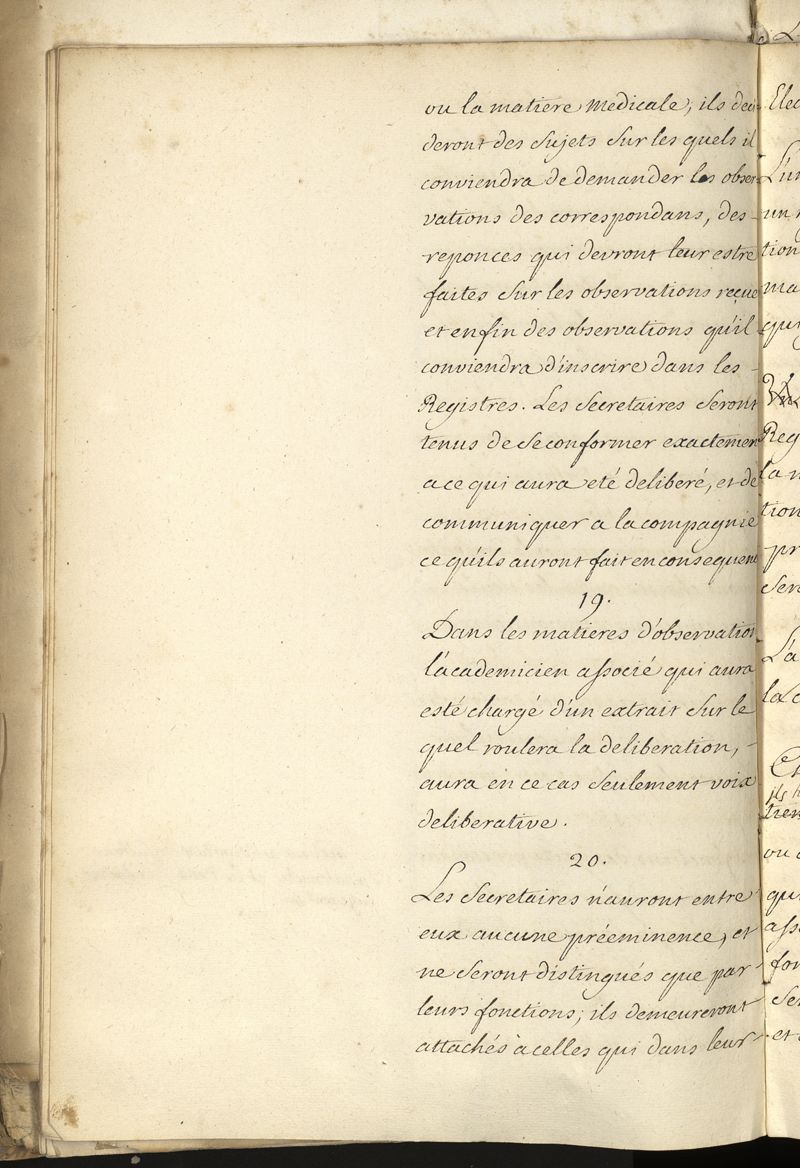 ou la matiere medicale, ils deci
deront des sujets sur les quels il
conviendra de demander les obser
vations des correspondans, des
reponces qui devront leur estre
faites sur les observations reçue
et enfin des observations qu'il
conviendra d'inscrire dans les
Registres. Les secretaires seront
tenus de se conformer exactemen
a ce qui aura eté deliberé, et de
communiquer a la compagnie
ce qu'ils auront fait en consequen
19.
Dans les matieres d'observation
l'academicien associé qui aura
esté chargé d'un extrait sur le
quel roulera la deliberation,
aura en ce cas seulement voix
deliberative.
20.
Les secretaires n'auront entre
eux aucune préeminence, et
ne seront distingués que par
leurs fonctions; ils demeureront
attachés à celles qui dans leur